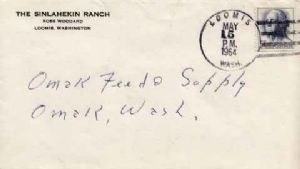 THE SINLAHEKIN RANCH
ROSS WOODARD
LOOMIS, WASHINGTON
LOOMIS
MAY
15
P.M.
1964
WASH.
Omak Feed & Supply
Omak, Wash.